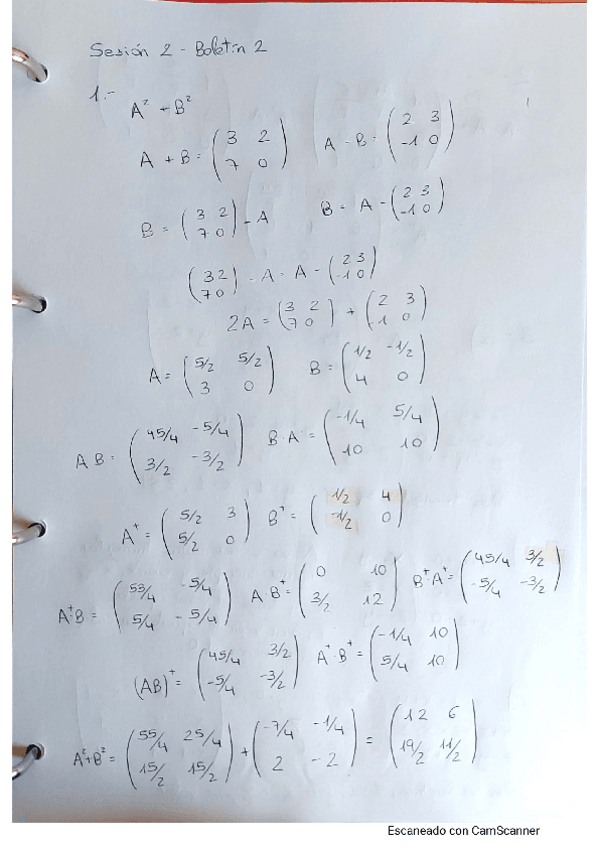 Sesión 2 - Boletín 2
1.- A² + B²
A + B = ( 3 2 ; 7 0 ) A - B = ( 2 3 ; -1 0 )
B = ( 3 2 ; 7 0 ) - A B = A - ( 2 3 ; -1 0 )
( 3 2 ; 7 0 ) - A = A - ( 2 3 ; -1 0 )
2A = ( 3 2 ; 7 0 ) + ( 2 3 ; -1 0 )
A = ( 5/2 5/2 ; 3 0 ) B = ( 1/2 -1/2 ; 4 0 )
A B = ( 45/4 -5/4 ; 3/2 -3/2 ) B·A = ( -1/4 5/4 ; 10 10 )
A⁺ = ( 5/2 3 ; 5/2 0 ) B⁺ = ( 1/2 4 ; -1/2 0 )
A⁺B = ( 53/4 -5/4 ; 5/4 -5/4 ) A·B⁺ = ( 0 10 ; 3/2 12 ) B⁺·A⁺ = ( 45/4 3/2 ; -5/4 -3/2 )
(AB)⁺ = ( 45/4 3/2 ; -5/4 -3/2 ) A⁺·B⁺ = ( -1/4 10 ; 5/4 10 )
A²+B² = ( 55/4 25/4 ; 15/2 15/2 ) + ( -7/4 -1/4 ; 2 -2 ) = ( 12 6 ; 19/2 11/2 )
Escaneado con CamScanner